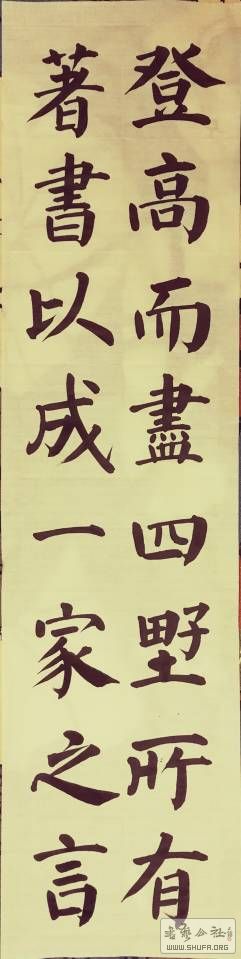 登高而盡四壄所有
著書以成一家之言
書藝公社
WWW.SHUFA.ORG